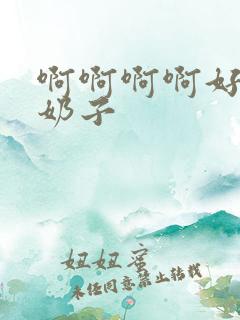 啊啊啊啊好
奶子
妞妞蜜
未经同意禁止转载